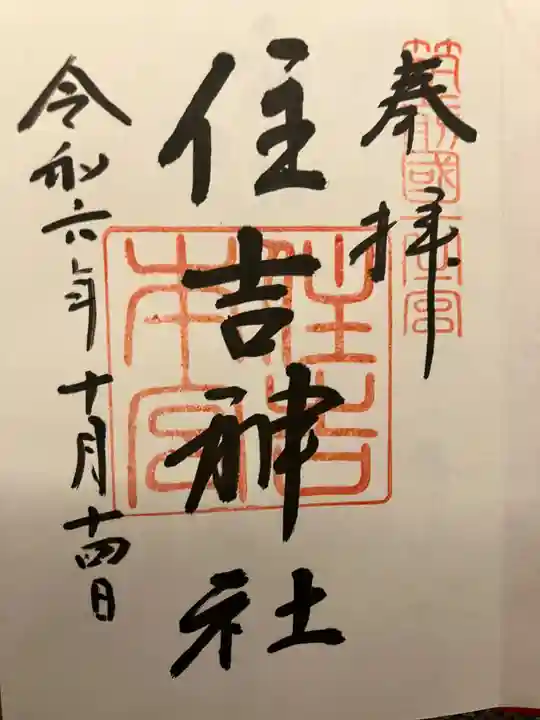 奉拝
筑前國一之宮
住吉神社
住吉本宮
令和六年十月十四日